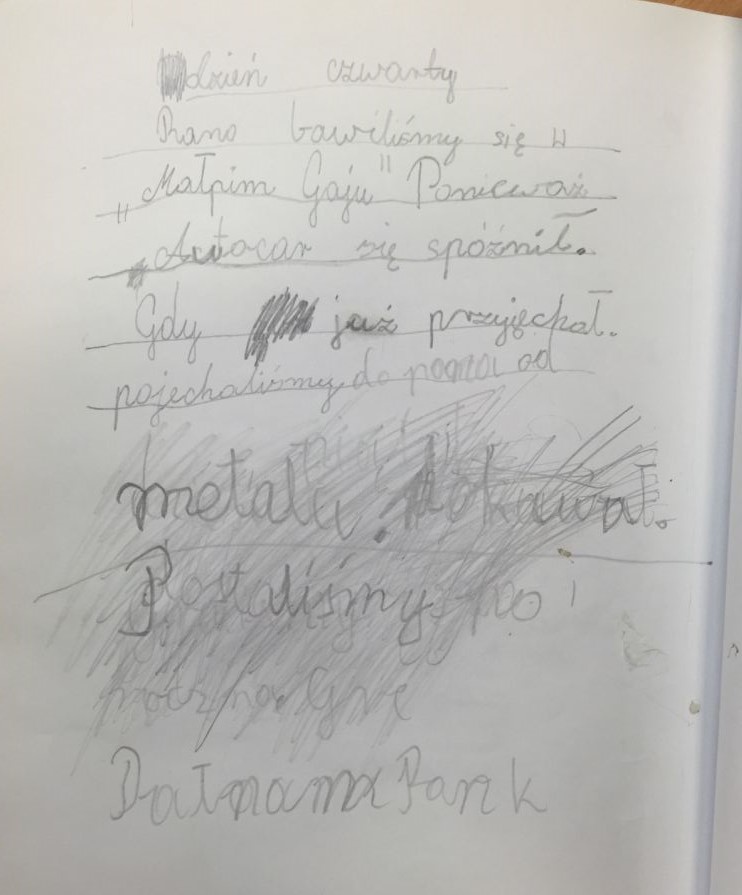 dzień czwarty
Rano bawiliśmy się w
„Małpim Gaju" Ponieważ
Autocar się spóźnił.
Gdy już przyjechał.
pojechaliśmy do pana od
metalu.
Postaliśmy po
Grę
Park